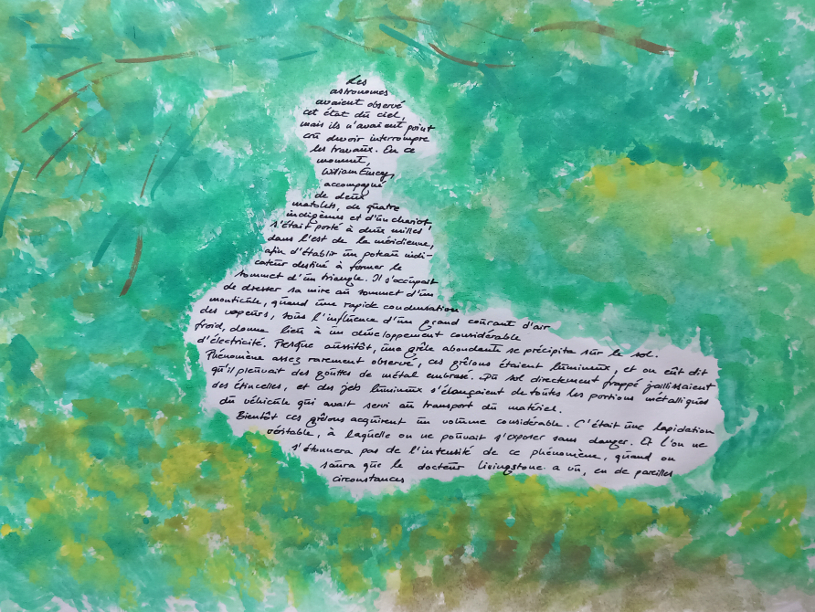 Les
astronomes
avaient observé
cet état du ciel,
mais ils n'avaient point
cru devoir interrompre
les travaux. En ce
moment,
William Emery,
accompagné
de deux
matelots, de quatre
indigènes et d'un chariot,
s'était porté à deux milles
dans l'est de la méridienne,
afin d'établir un poteau indi-
cateur destiné à former le
sommet d'un triangle. Il s'occupait
de dresser sa mire au sommet d'un
monticule, quand une rapide condensation
des vapeurs, sous l'influence d'un grand courant d'air
froid, donna lieu à un développement considérable
d'électricité. Presque aussitôt, une grêle abondante se précipita sur le sol.
Phénomène assez rarement observé, ces grêlons étaient lumineux, et on eût dit
qu'il pleuvait des gouttes de métal embrasé. Du sol directement frappé jaillissaient
des étincelles, et des jets lumineux s'élançaient de toutes les portions métalliques
du véhicule qui avait servi au transport du matériel.
Bientôt ces grêlons acquirent un volume considérable. C'était une lapidation
véritable, à laquelle on ne pouvait s'exposer sans danger. Et l'on ne
s'étonnera pas de l'intensité de ce phénomène, quand on
saura que le docteur Livingstone a vu, en de pareilles
circonstances